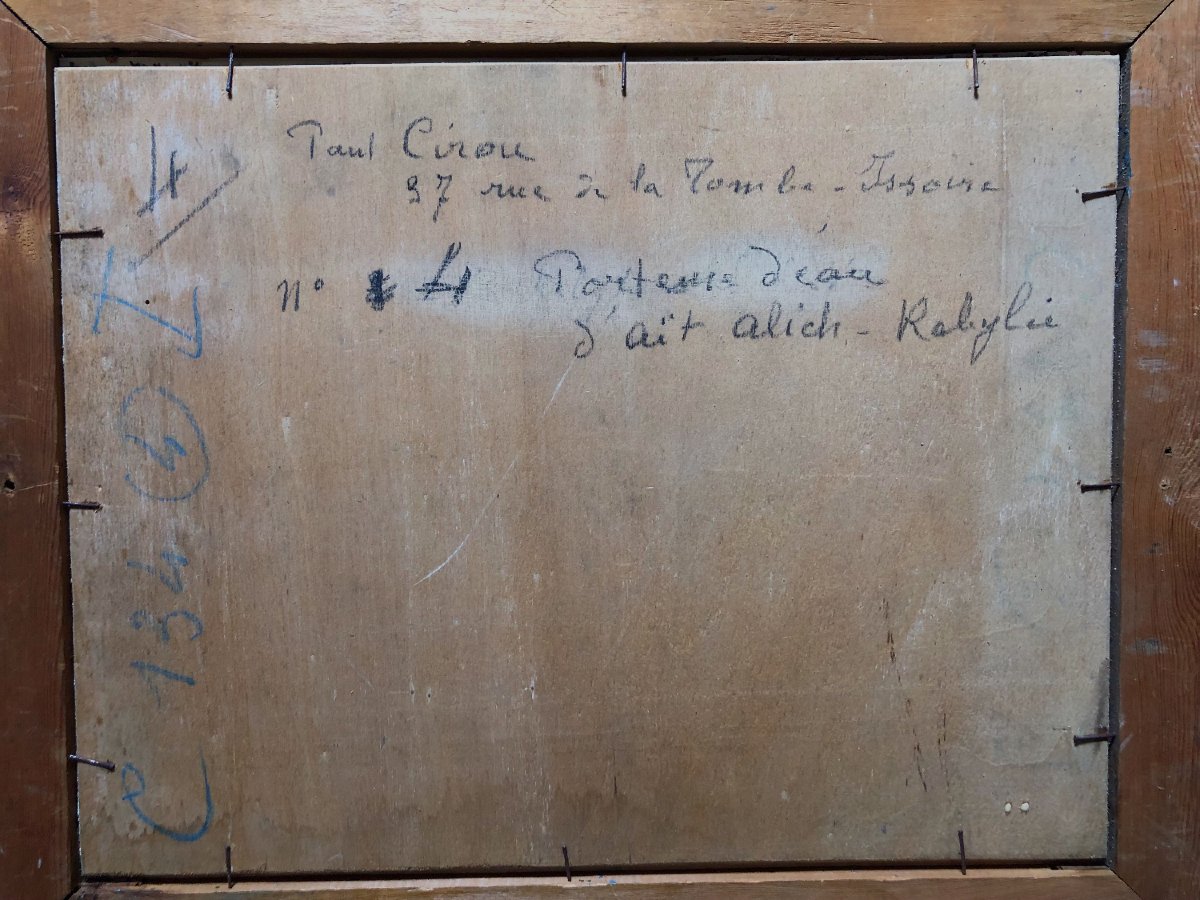 4
Paul Cirou
97 rue de la Tombe-Issoire
N° 4 Porteuse d'éau
d'aït alich - Kabylie
C 134 (4)